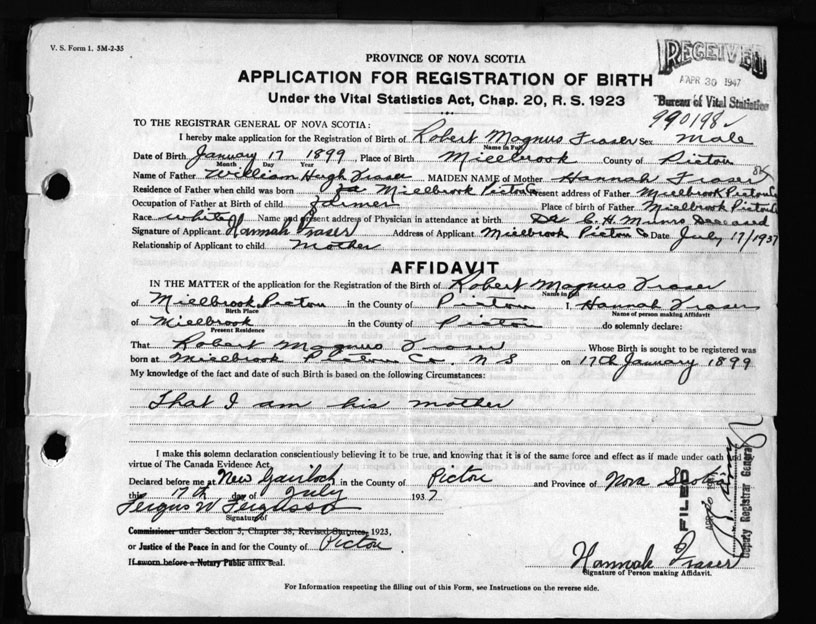 V. S. Form 1. 5M-2-35
PROVINCE OF NOVA SCOTIA
RECEIVED
APR 30 1947
Bureau of Vital Statistics
APPLICATION FOR REGISTRATION OF BIRTH
Under the Vital Statistics Act, Chap. 20, R. S. 1923
990198
TO THE REGISTRAR GENERAL OF NOVA SCOTIA:
I hereby make application for the Registration of Birth of Robert Magnus Fraser Sex Male
Name in Full
Date of Birth January 17 1899 Place of Birth Millbrook County of Pictou
Month Day Year
Name of Father William Hugh Fraser MAIDEN NAME of Mother Hannah Fraser
Residence of Father when child was born Millbrook Pictou Co Present address of Father Millbrook Pictou Co
Occupation of Father at Birth of child Farmer Place of birth of Father Millbrook Pictou Co
Race White Name and present address of Physician in attendance at birth Dr C. H. Munro Deceased
Signature of Applicant Hannah Fraser Address of Applicant Millbrook Pictou Co Date July 17/1937
Relationship of Applicant to child Mother
AFFIDAVIT
IN THE MATTER of the application for the Registration of the Birth of Robert Magnus Fraser
Name in full
of Millbrook Pictou in the County of Pictou I, Hannah Fraser
Birth Place Name of person making Affidavit
of Millbrook in the County of Pictou do solemnly declare:
Present Residence
That Robert Magnus Fraser Whose Birth is sought to be registered was
born at Millbrook Pictou Co. N S on 17th January 1899
My knowledge of the fact and date of such Birth is based on the following Circumstances:
That I am his mother
I make this solemn declaration conscientiously believing it to be true, and knowing that it is of the same force and effect as if made under oath and by
virtue of The Canada Evidence Act.
Declared before me at New Gairloch in the County of Pictou and Province of Nova Scotia
this 17th day of July 1937
Fergus W Ferguson
Signature of
Commissioner under Section 3, Chapter 38, Revised Statutes, 1923,
or Justice of the Peace in and for the County of Pictou
If sworn before a Notary Public affix seal.
Hannah Fraser
Signature of Person making Affidavit.
FILED
APR
Deputy Registrar General
For Information respecting the filling out of this Form, see Instructions on the reverse side.